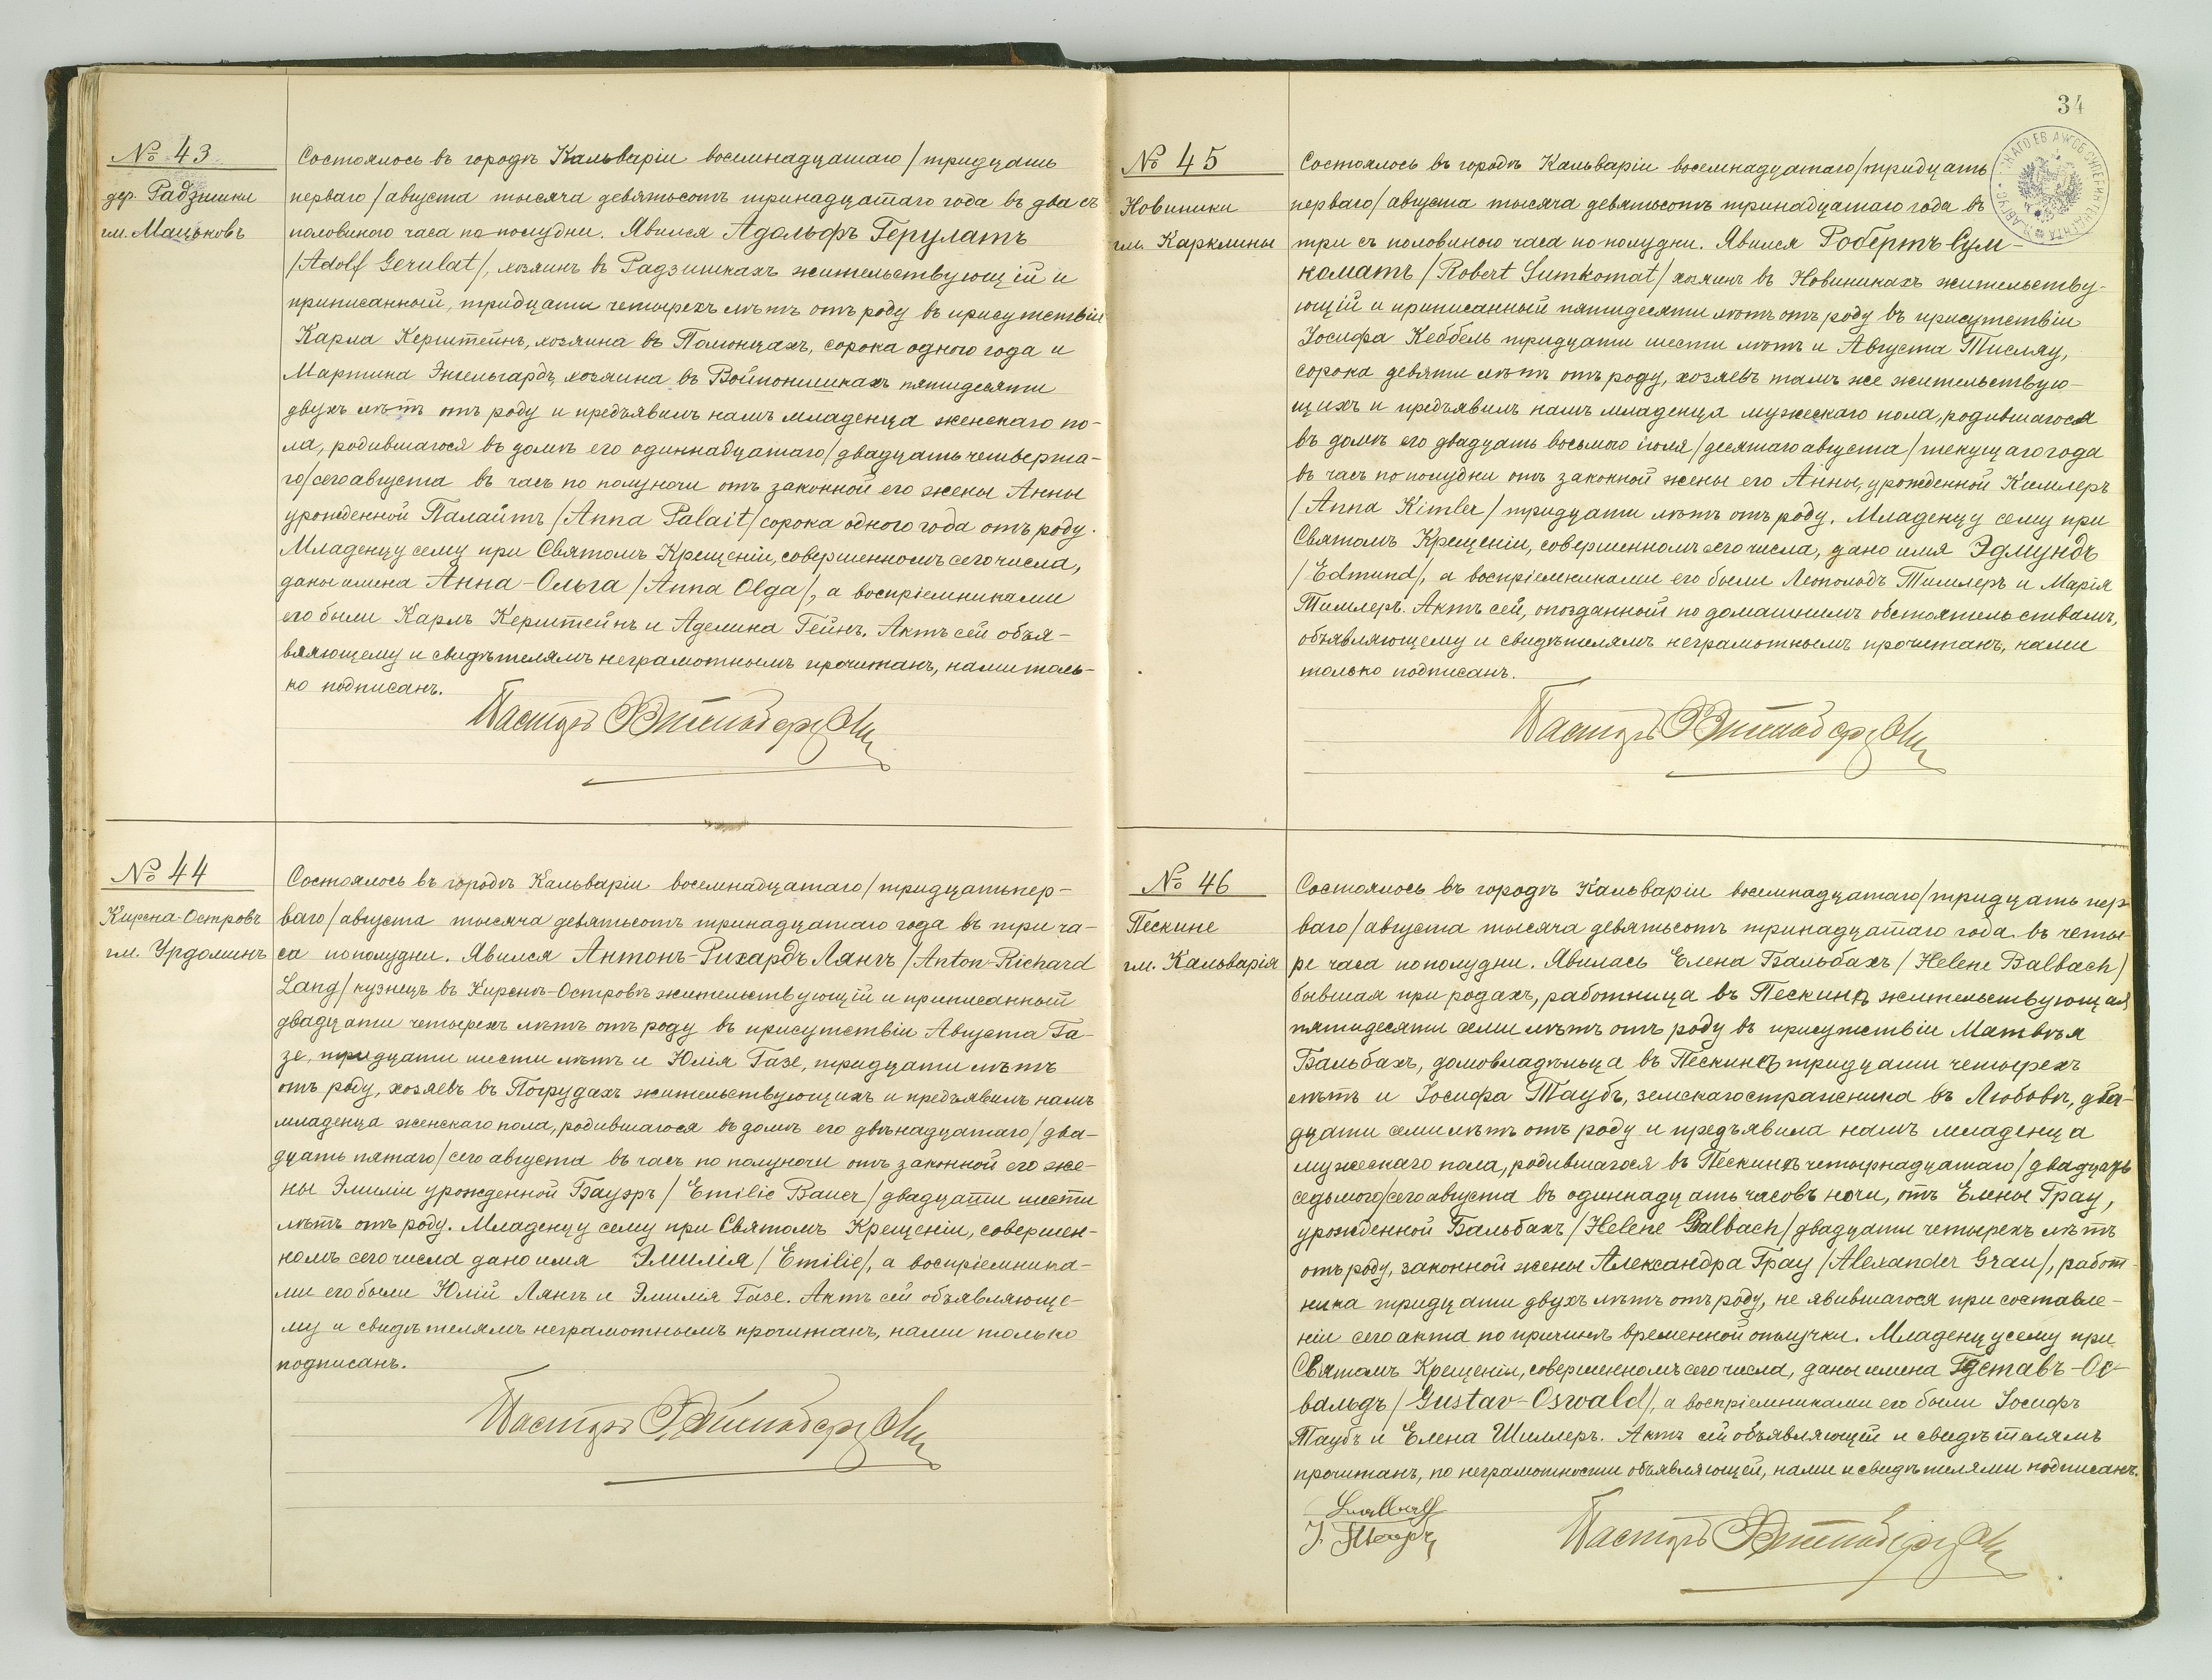 № 43
дер. Радзишки
гм. Мацьковъ
Состоялось въ городѣ Кальваріи восемнадцатаго /тридцать
перваго/ августа тысяча девятьсотъ тринадцатаго года въ два съ
половиною часа по полудни. Явился Адольфъ Герулатъ
/Adolf Gerulat/, хозяинъ въ Радзишкахъ жительствующій и
приписанный, тридцати четырехъ лѣтъ отъ роду въ присутствіи
Карла Керштейнъ, хозяина въ Полонцахъ, сорока одного года и
Мартина Энгельгардъ, хозяина въ Войпонишкахъ пятидесяти
двухъ лѣтъ отъ роду и предъявилъ намъ младенца женскаго по-
ла, родившагося въ домѣ его одиннадцатаго/двадцать четверта-
го/сего августа въ часъ по полуночи отъ законной его жены Анны
урожденной Палайтъ /Anna Palait/ сорока одного года отъ роду.
Младенцу сему при Святомъ Крещеніи, совершенномъ сего числа,
даны имена Анна-Ольга /Anna Olga/, а воспріемниками
его были Карлъ Керштейнъ и Аделина Гейнъ. Актъ сей объя-
вляющему и свидѣтелямъ неграмотнымъ прочитанъ, нами толь-
ко подписанъ.
Пасторъ
№ 44
Кирсна-Островъ
гм. Урдоминъ
Состоялось въ городѣ Кальваріи восемнадцатаго/тридцать пер-
ваго/августа тысяча девятьсотъ тринадцатаго года въ три ча-
са пополудни. Явился Антонъ-Рихардъ Лянгъ /Anton-Richard
Lang/ кузнецъ въ Кирснѣ-Островѣ жительствующій и приписанный
двадцати четырехъ лѣтъ отъ роду въ присутствіи Августа Га-
зе, тридцати шести лѣтъ и Юлія Газе, тридцати лѣтъ
отъ роду, хозяевъ въ Погрудахъ жительствующихъ и предъявилъ намъ
младенца женскаго пола, родившагося въ домѣ его двѣнадцатаго/два-
дцать пятаго/сего августа въ часъ по полуночи отъ законной его же-
ны Эмиліи урожденной Бауэръ /Emilie Bauer/ двадцати шести
лѣтъ отъ роду. Младенцу сему при Святомъ Крещеніи, совершен-
номъ сего числа дано имя Эмилія /Emilie/, а воспріемника-
ми его были Юлій Лянгъ и Эмилія Газе. Актъ сей объявляюще-
му и свидѣтелямъ неграмотнымъ прочитанъ, нами только
подписанъ.
Пасторъ
34
№ 45
Новиники
гм. Карклины
Состоялось въ городѣ Кальваріи восемнадцатаго/тридцать
перваго/ августа тысяча девятьсотъ тринадцатаго года въ
три съ половиною часа по полудни. Явился Робертъ Сум-
коматъ /Robert Sumkomat/ хозяинъ въ Новиникахъ жительству-
ющій и приписанный пятидесяти лѣтъ отъ роду въ присутствіи
Іосифа Кеббель тридцати шести лѣтъ и Августа Тисляу,
сорока девяти лѣтъ отъ роду, хозяевъ тамъ же жительствую-
щихъ и предъявилъ намъ младенца мужескаго пола, родившагося
въ домѣ его двадцать восьмого іюля/десятаго августа/текущаго года
въ часъ по полудни отъ законной жены его Анны, урожденной Кимлеръ
/Anna Kimler/ тридцати лѣтъ отъ роду. Младенцу сему при
Святомъ Крещеніи, совершенномъ сего числа, дано имя Эдмундъ
/Edmund/, а воспріемниками его были Леопольдъ Тимлеръ и Марія
Тимлеръ. Актъ сей, опозданный по домашнимъ обстоятельствамъ,
объявляющему и свидѣтелямъ неграмотнымъ прочитанъ, нами
только подписанъ.
Пасторъ
№ 46
Пескине
гм. Кальварія
Состоялось въ городѣ Кальваріи восемнадцатаго/тридцать пер-
ваго/августа тысяча девятьсотъ тринадцатаго года въ четы-
ре часа пополудни. Явилась Елена Бальбахъ /Helene Balbach/
бывшая при родахъ, работница въ Пескинѣ жительствующая
пятидесяти семи лѣтъ отъ роду въ присутствіи Матвѣя
Бальбахъ, домовладѣльца въ Пескинѣ тридцати четырехъ
лѣтъ и Іосифа Таубъ, земскаго стражника въ Любовѣ, два-
дцати семи лѣтъ отъ роду и предъявила намъ младенца
мужескаго пола, родившагося въ Пескинѣ четырнадцатаго/двадцать
седьмого/сего августа въ одиннадцать часовъ ночи, отъ Елены Грау,
урожденной Бальбахъ /Helene Balbach/ двадцати четырехъ лѣтъ
отъ роду, законной жены Александра Грау /Alexander Grau/, работ-
ника тридцати двухъ лѣтъ отъ роду, не явившагося при составле-
ніи сего акта по причинѣ временной отлучки. Младенцу сему при
Святомъ Крещеніи, совершенномъ сего числа, даны имена Густавъ-Ос-
вальдъ /Gustav-Oswald/, а воспріемниками его были Іосифъ
Таубъ и Елена Шиллеръ. Актъ сей объявляющей и свидѣтелямъ
прочитанъ, по неграмотности объявляющей, нами и свидѣтелями подписанъ.
Пасторъ